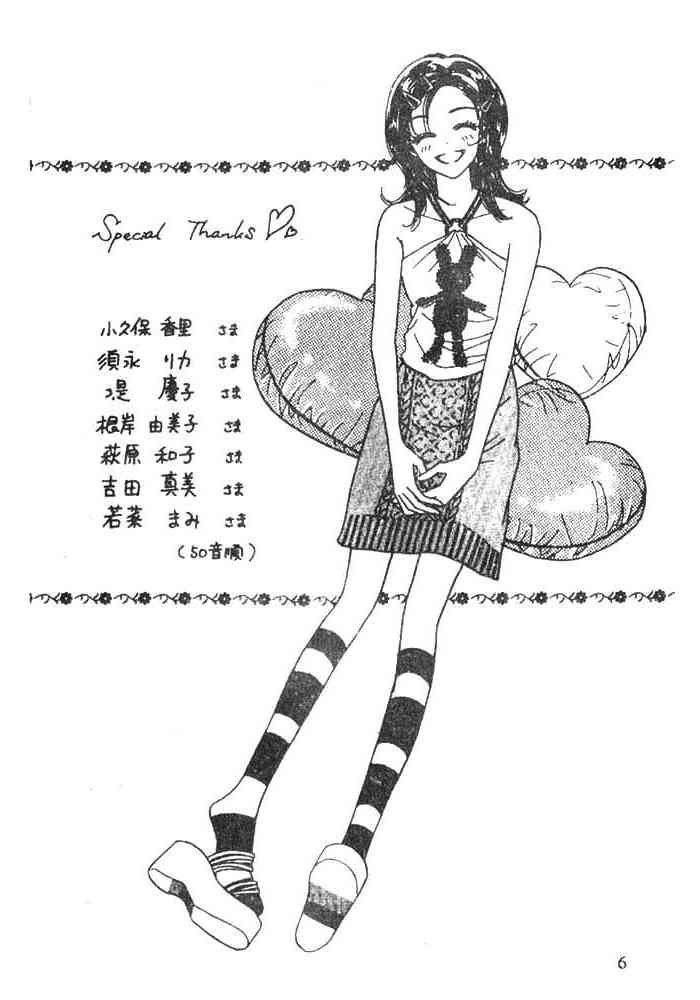 Special Thanks
小久保 香里 さま
須永 リカ さま
堤 慶子 さま
根岸 由美子 さま
萩原 和子 さま
吉田 真美 さま
若菜 まみ さま
(50音順)
6